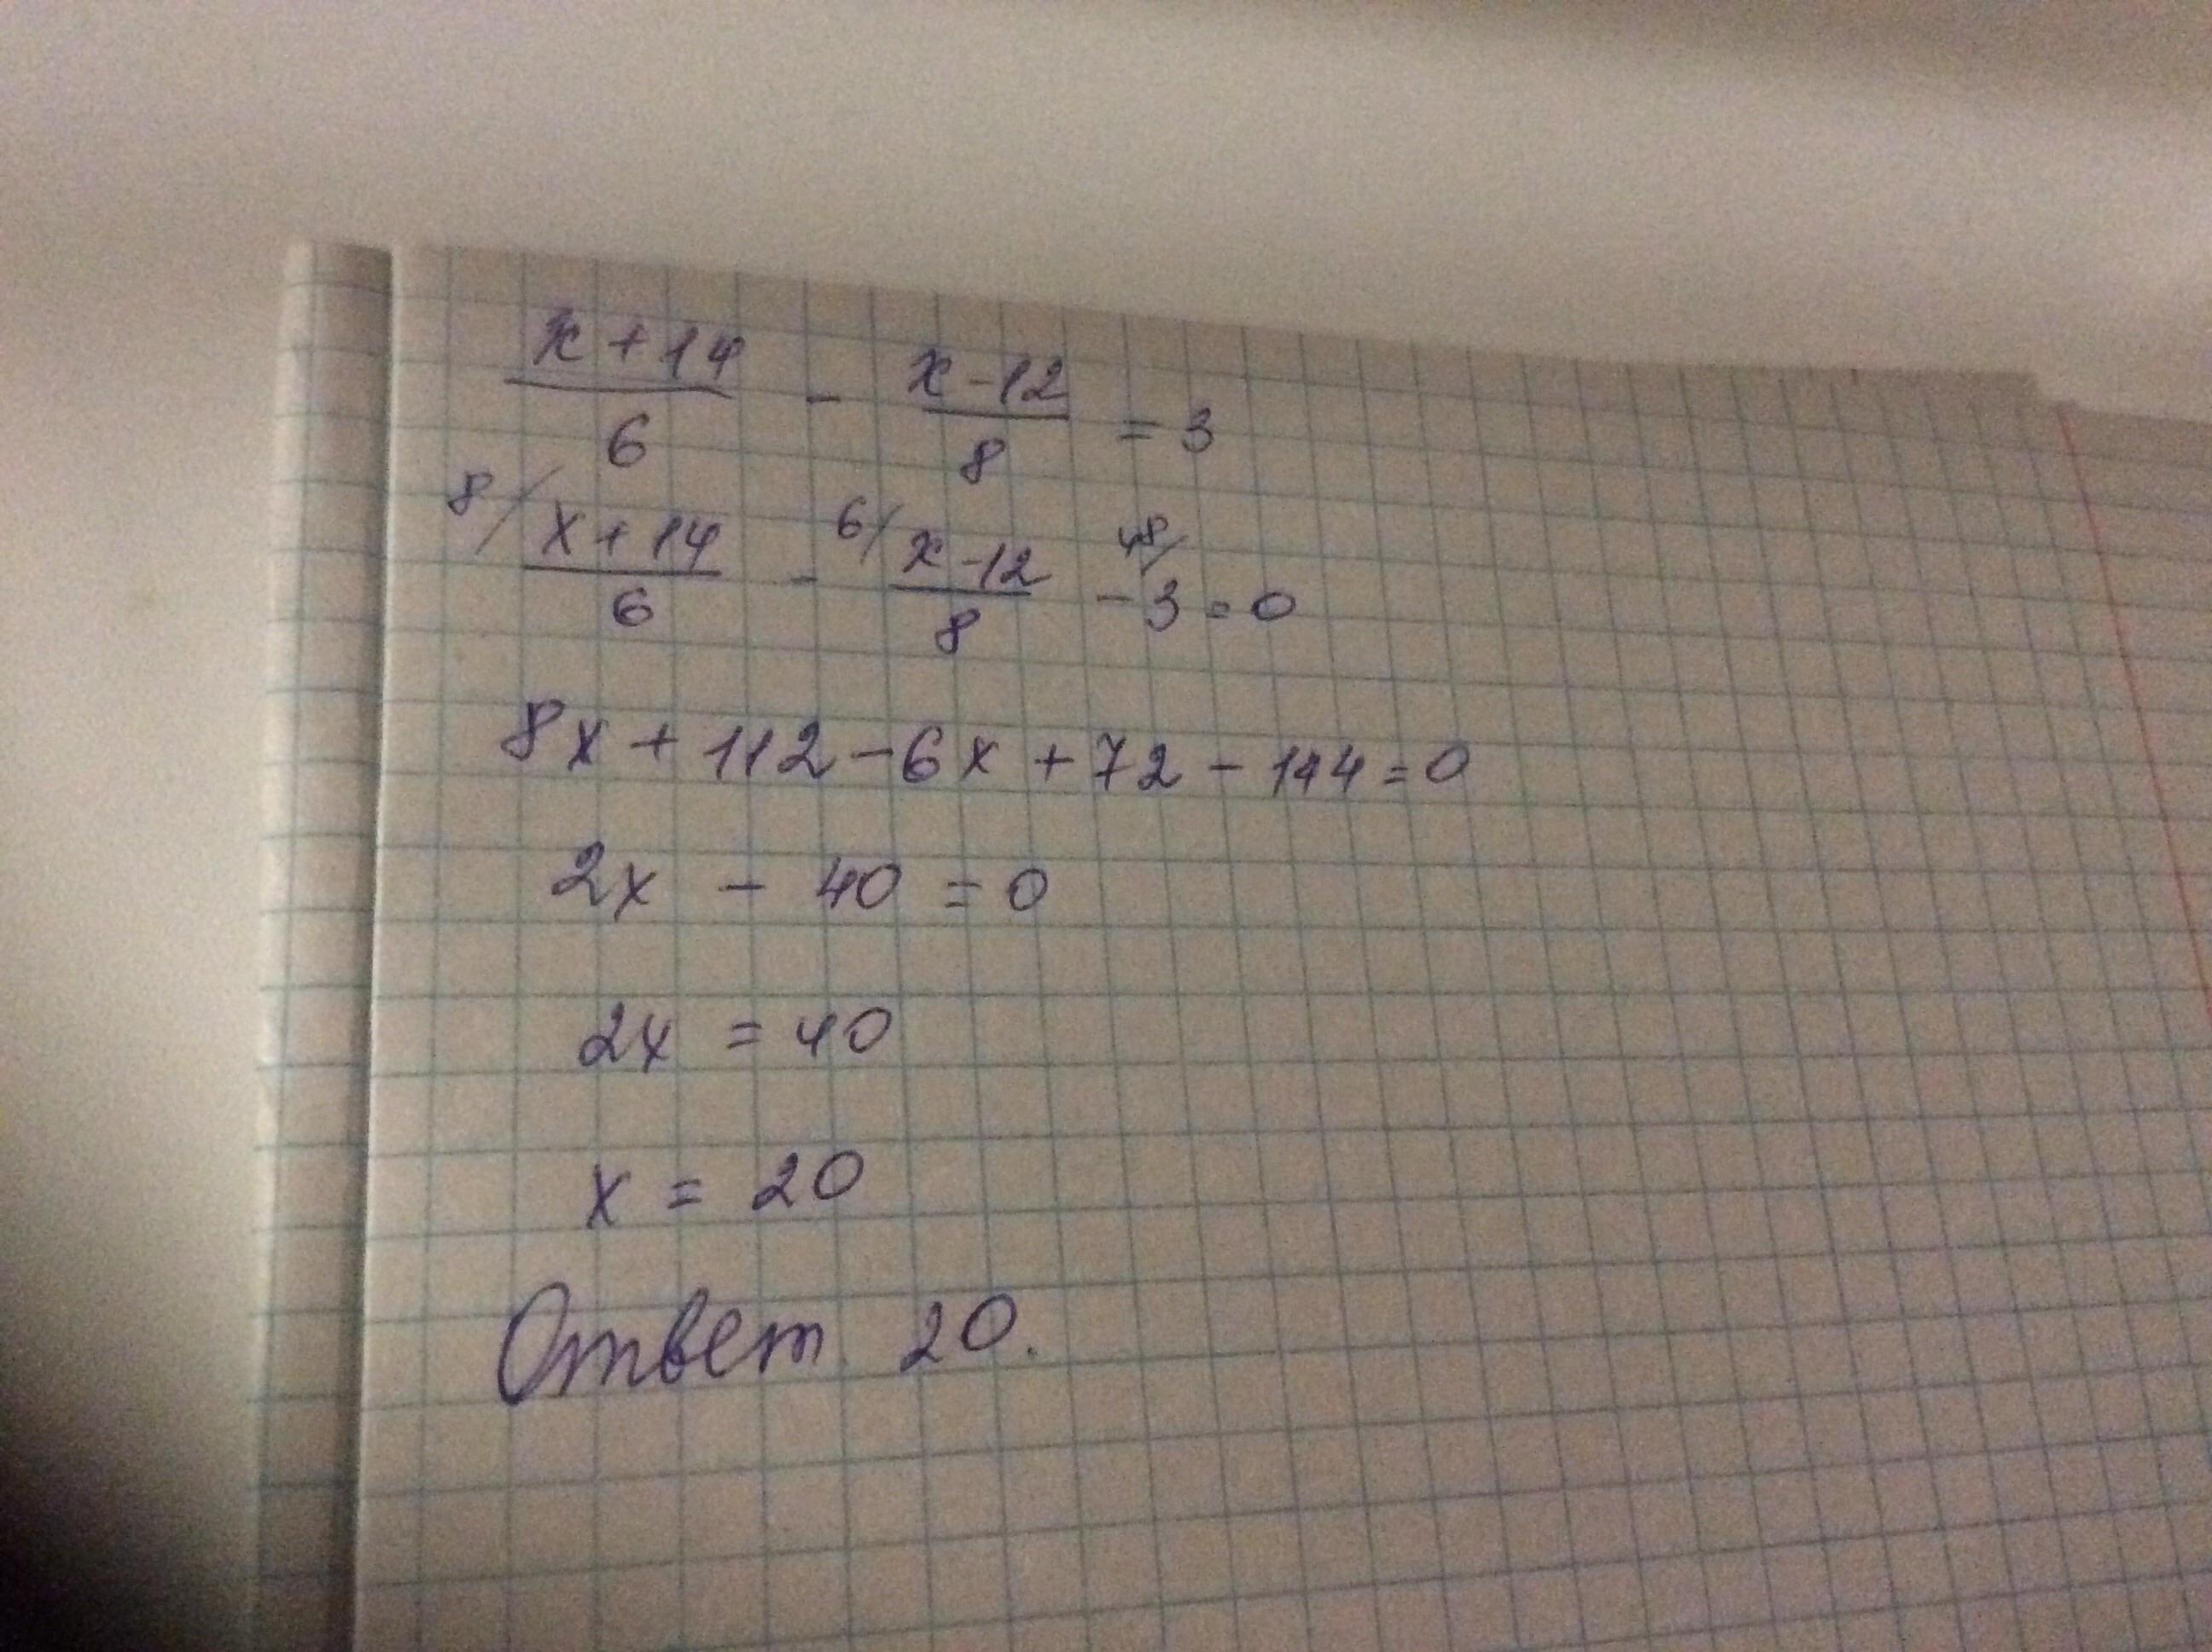 x+14/6 - x-12/8 = 3
8/ x+14/6 - 6/ x-12/8 - 48/ 3 = 0
8x + 112 - 6x + 72 - 144 = 0
2x - 40 = 0
2x = 40
x = 20
Ответ 20.